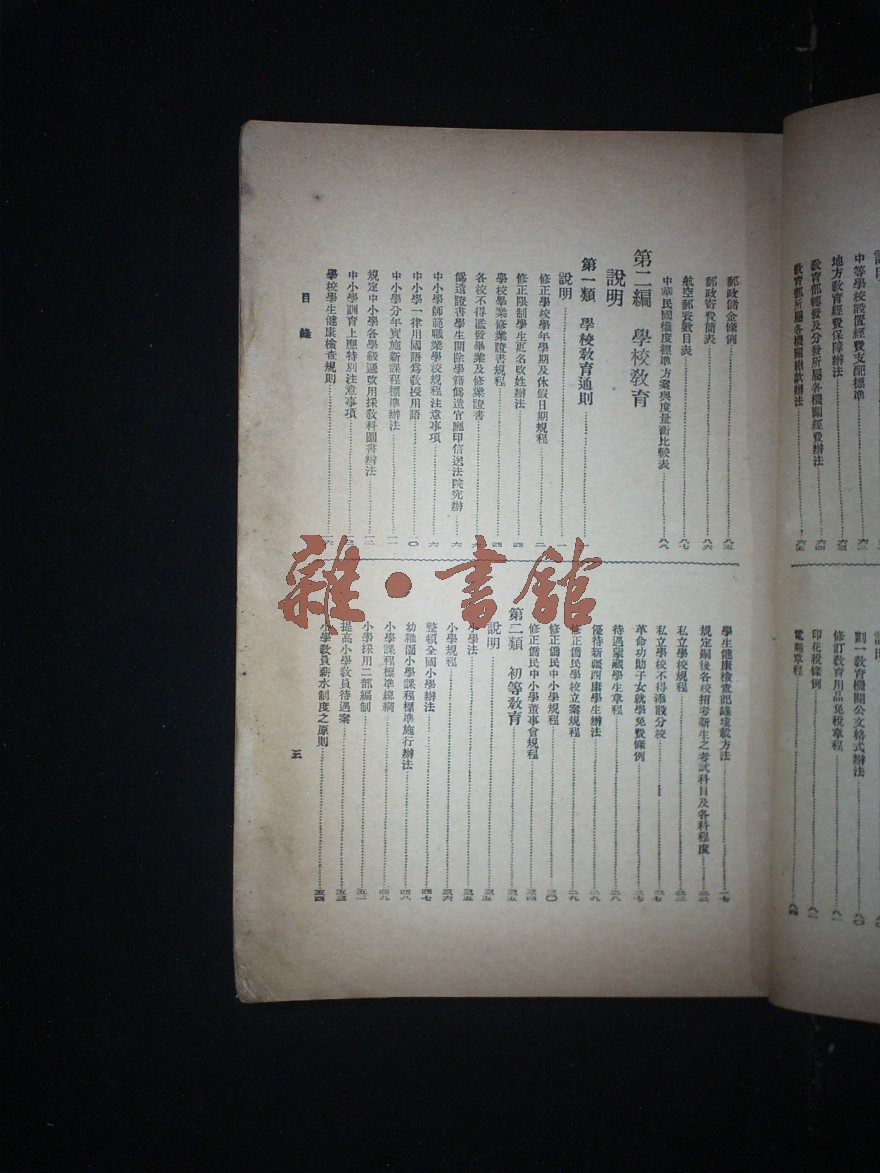 中等學校設置經費支配標準
地方教育經費保障辦法
教育部轉發及分發所屬各機關經費辦法
教育部所屬各機關領款辦法
劃一教育機關公文格式辦法
修訂教育用品免稅章程
印花稅條例
電報章程
郵政儲金條例 八五
郵政寄費簡表 八六
航空郵資數目表 八七
中華民國權度標準方案與度量衡比較表 八八
第二編 學校教育
說明
第一類 學校教育通則
說明 一
修正學校學年學期及休假日期規程 二
修正限制學生更名改姓辦法 四
學校學業修業證書規程 四
各校不得濫發畢業及修業證書
偽造證書學生開除學籍偽造官廳印信送法院究辦 六
中小學師範職業學校規程注意事項 六
中小學一律用國語為教授用語
中小學分年實施新課程標準辦法
規定中小學各學級遞改用採教科圖書辦法
中小學訓育上應特別注意事項
學校學生健康檢查規則
學生健康檢查記錄填載方法 一七
規定嗣後各校招考新生之考試科目及各科程度
私立學校規程
私立學校不得添設分校 二七
革命功勛子女就學免費條例 二七
待遇蒙藏學生章程 二八
優待新疆西康學生辦法 二九
修正僑民學校立案規程 二九
修正僑民中小學規程 三〇
修正僑民中小學董事會規程 三四
第二類 初等教育 三五
說明 三五
小學法 三五
小學規程 三六
整頓全國小學辦法 四七
幼稚園小學課程標準施行辦法 四八
小學課程標準總綱 四九
小學採用二部編制 五二
提高小學教員待遇案 五三
小學教員薪水制度之原則 五四
目錄
三
雜·書館